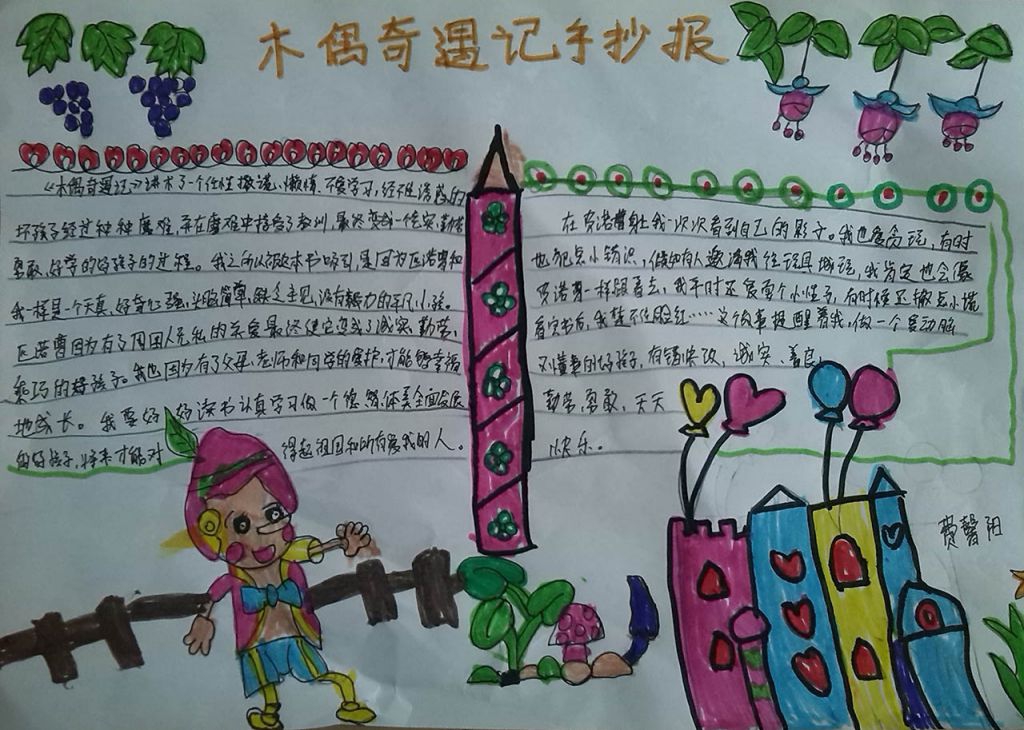 木偶奇遇记手抄报
《木偶奇遇记》讲述了一个任性、撒谎、懒惰、不爱学习、经不住诱惑的
坏孩子经过种种磨难,并在磨难中接受了教训,最终变成一个诚实、勤劳
勇敢、好学的好孩子的过程。我之所以被本书吸引,是因为匹诺曹和
我一样是一个天真、好奇心强、头脑简单、缺乏主见、没有毅力的平凡小孩。
匹诺曹因为有了周围人无私的关爱最终使它变成了诚实、勤劳、
乖巧的好孩子。我也因为有了父母、老师和同学的爱护,才能够幸福
地成长。我要好好读书认真学习做一个德、智、体、美全面发展
的好孩子,将来才能对得起祖国和所有爱我的人。
在皮诺曹身上我一次次看到自己的影子。我也爱贪玩,有时
也犯点小错误,假如有人邀请我往玩具城玩,我肯定也会像
皮诺曹一样跟着去,我平时还爱耍个小性子,有时候还撒点小谎
看完书后,我禁不住脸红……这个故事提醒着我,做一个爱动脑
又懂事的好孩子,有错就改,诚实、善良
勤劳、勇敢,天天
快乐。
费馨阳